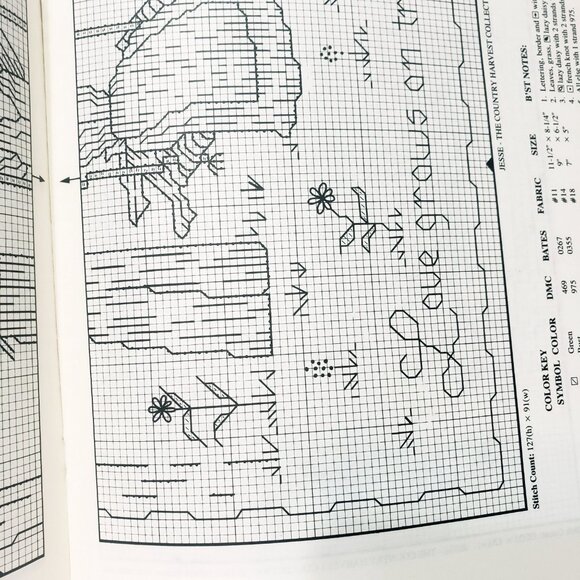 Love grows on tr
JESSE - THE COUNTRY HARVEST COLLECT
Stitch Count: 127(h) × 91(w)
COLOR KEY
SYMBOL COLOR DMC BATES
Green 469 0267
975 0355
FABRIC SIZE
#11 11-1/2" × 8-1/4"
#14 9" × 6-1/2"
#18 7" × 5"
B'ST NOTES:
1. Lettering, border and
2. Leaves, grass, lazy daisy
3. lazy daisy with 2 strands
4. french knot with 2 strands
All else with 1 strand 975.